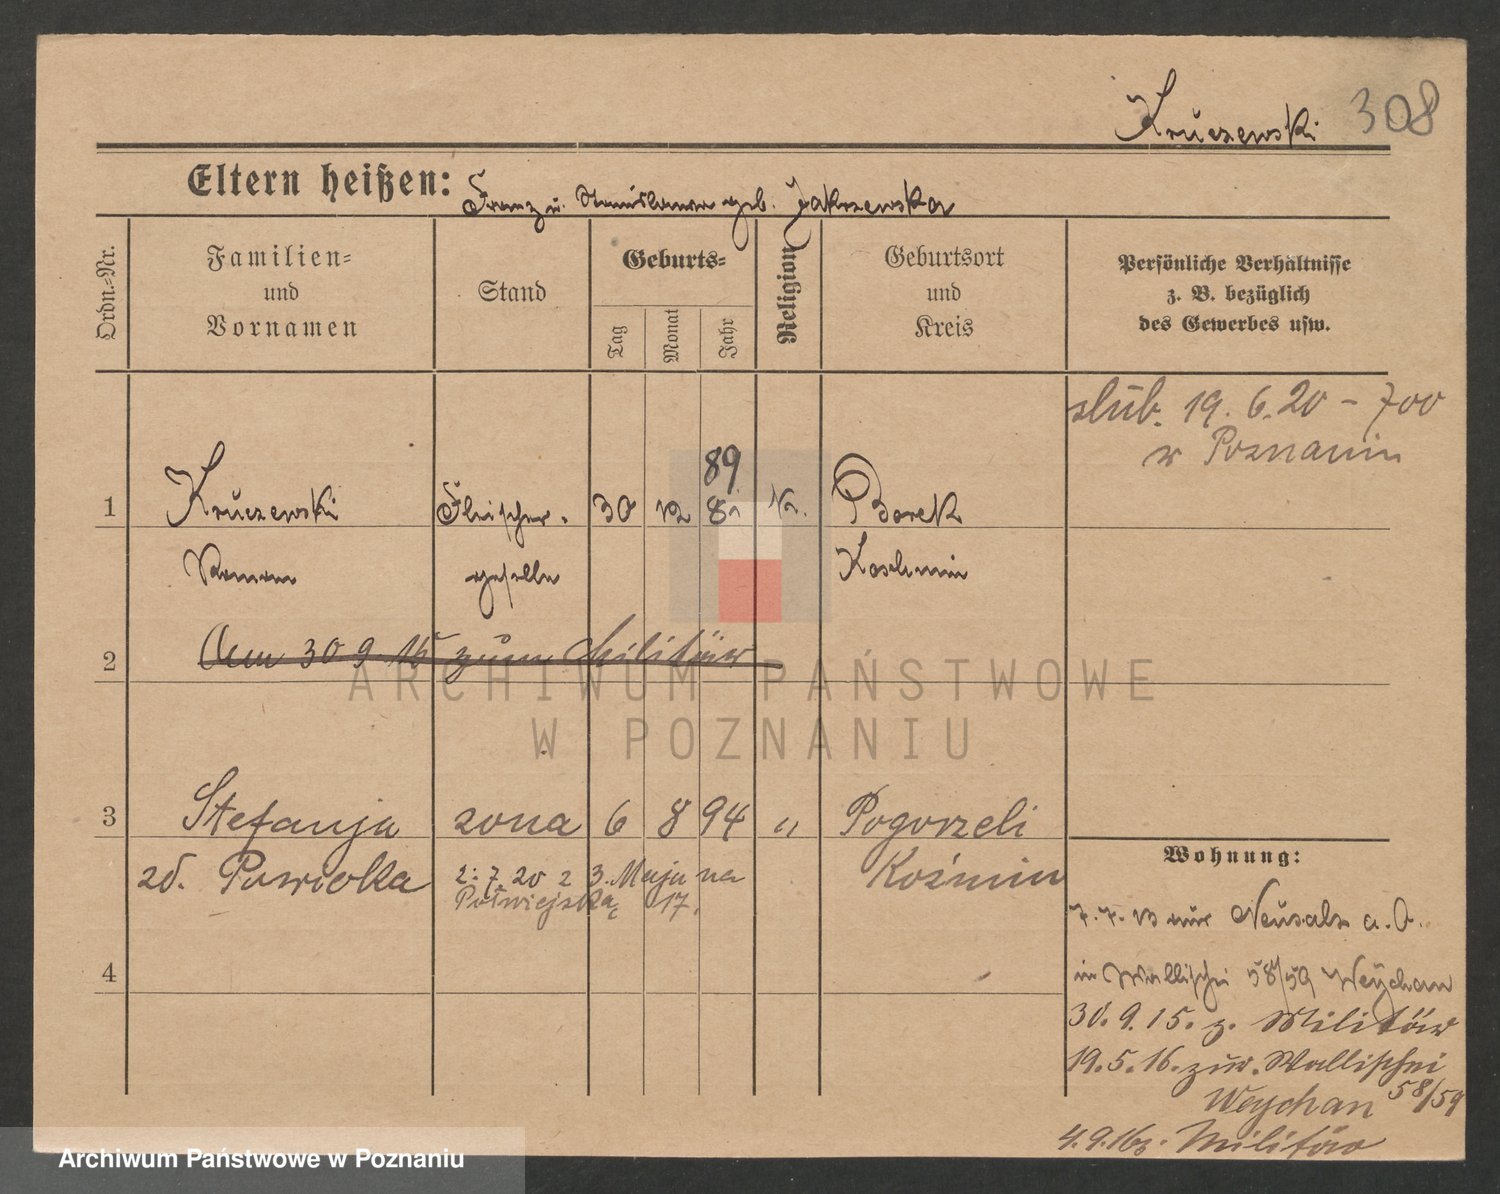 Kruczewski 308
Eltern heißen: Franz u. Stanislawa geb. Zakrzewska
Ordn.-Nr.
Familien-
und
Vornamen
Stand
Geburts-
Tag
Monat
Jahr
Religion
Geburtsort
und
Kreis
Persönliche Verhältnisse
z. B. bezüglich
des Gewerbes usw.
ślub. 19. 6. 20 - 700
w Poznaniu
89
1 Kruczewski Fleischer- 30 12 k. Borek
Roman geselle Koschmin
2 Am 30 9 15 zum Militär
3 Stefanja żona 6 8 94 " Pogorzeli
zd. Koźmin
2. 7. 20 z 3. Maja na
Półwiejską 17.
4
Wohnung:
7. 7. 13 aus Neusalz a. O.
in Wallischei 58/59 Weychan
30. 9. 15. z. Militär
19. 5. 16. zur. Wallischei
Weychan 58/59
4. 9. 16 z. Militär
ARCHIWUM PAŃSTWOWE
W POZNANIU
Archiwum Państwowe w Poznaniu